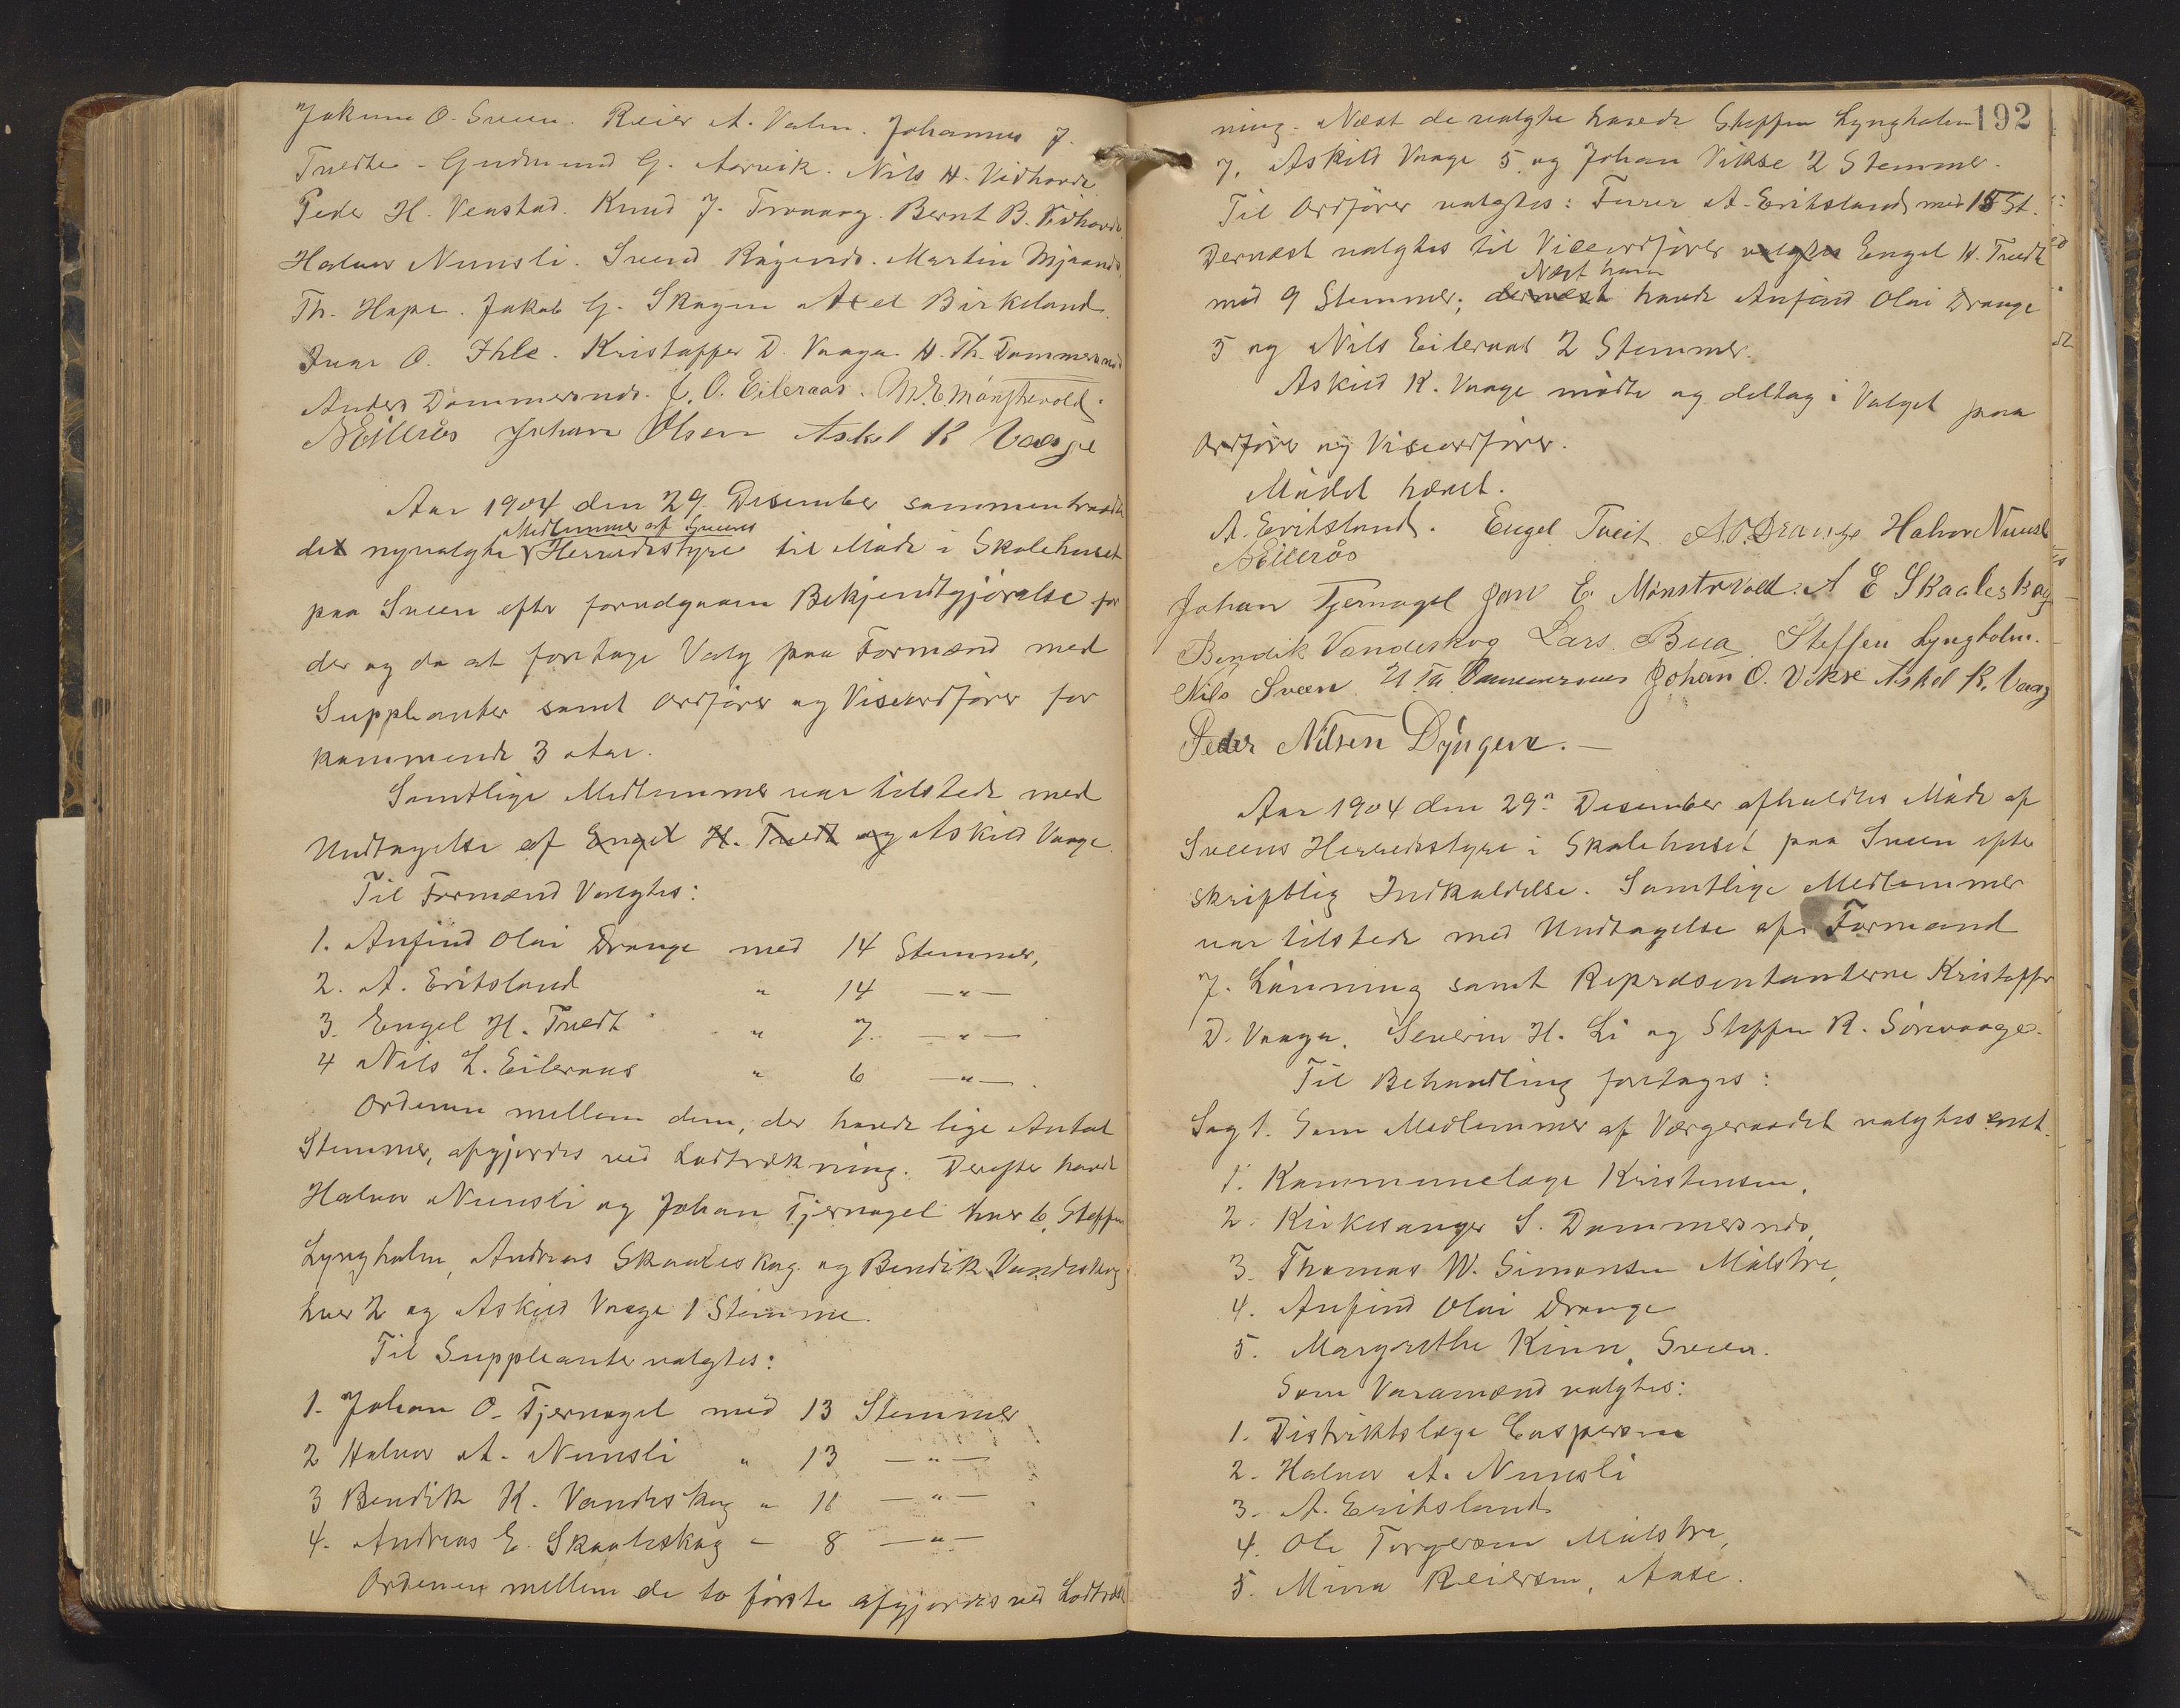 Jakum O. Sveen. Reier A. Valen. Johannes J.
Tvedte. Gudmund G. Aarvik. Nils H. Vidhovde
Peder H. Venstad. Knud J. Trovaag. Bernt B. Vidhovde
Halvor Nunsli. Svend Røgends. Martin Mjaands.
Th. Hope. Jakob G. Skogen Axel Birkeland.
Ivar O. Ihle. Kristoffer D. Vaaga. H. Th. Dommersnes
Anders Dommersnes. J. O. Eileraas. M. E. Mønstrevold.
N Eilerås Johan Olsen Askel K Vaage
Aar 1904 den 29 Desember sammentraadte
Medlemmer af Sveens
det nyvalgte Herredsstyre til Møde i Skolehuset
paa Sveen efter forudgaaen Bekjendtgjørelse for
der og da at foretage Valg paa Formænd med
Suppleanter samt Ordfører og Viseordfører for
kommende 3 Aar.
Samtlige Medlemmer var tilstede med
Undtagelse af Engel H. Tvedt og Askild Vaage.
Til Formænd Valgtes:
1. Anfind Olai Drange med 14 Stemmer,
2. A. Eritsland " 14 —"—
3. Engel H. Tvedt " 7. —"—
4 Nils L. Eileraas " 6 —"—.
Ordenen mellem dem, der havde lige Antal
Stemmer, afgjordes ved Lodtrækning. Derefter havde
Halvor Nunsli og Johan Tjernagel hver 6, Steffen
Lyngholm, Andreas Skaaleskog og Bendik Vandeskog
hver 2 og Askild Vaage 1 Stemme.
Til Suppleanter valgtes:
1. Johan O. Tjernagel med 13 Stemmer
2 Halvor A. Nunsli " 13 —"—
3 Bendik K. Vandeskog " 11 —"—
4. Andreas E. Skaaleskog – 8 —"—
Ordenen mellem de to første afgjordes ved Lodtræk
192
ning. Næst de valgte havde Steffen Lyngholm
7, Askild Vaage 5 og Johan Vikse 2 Stemmer.
Til Ordfører valgtes: Furer A. Eritsland med 15 St.
Dernæst valgtes til Viseordfører valgtes Engel H. Tvedt
Næst ham
med 9 Stemmer; dernæst havde Anfind Olai Drange
5 og Nils Eileraas 2 Stemmer.
Askild K. Vaage mødte og deltog i Valget paa
Ordfører og Viseordfører.
Mødet hævet.
A. Eritsland. Engel Tveit A. O. Drange Halvor Nunsli
N Eilerås
Johan Tjernagel Jon E. Mønstrevold. A E Skaaleskog
Bendik Vandeskog Lars. Bua. Steffen Lyngholm.
Nils Sveen H Th Dommersnes Johan O. Vikse Askel K. Vaag
Peder Nilsen Døyngen.—
Aar 1904 den 29n Desember afholdtes Møde af
Sveens Herredsstyre i Skolehuset paa Sveen efter
skriftlig Indkaldelse. Samtlige Medlemmer
var tilstede med Undtagelse af Formand
J. Lønning samt Repræsentanterne Kristoffer
D. Vaaga, Severin H. Li og Steffen R. Sørvaage.
Til Behandling foretages:
Sag 1. Som Medlemmer af Værgeraadet valgtes enst.
1. Kommunelæge Kristensen,
2. Kirkesanger S. Dommersnes,
3. Thomas W. Simonsen Mølstre,
4. Anfind Olai Drange
5. Margrethe Kinn, Sveen.
Som Varamænd valgtes:
1. Distriktslæge Caspersen
2. Halvor A. Nunsli
3. A. Eritsland
4. Ole Torgersen Mølstre,
5. Mina Reiersen, Aase.